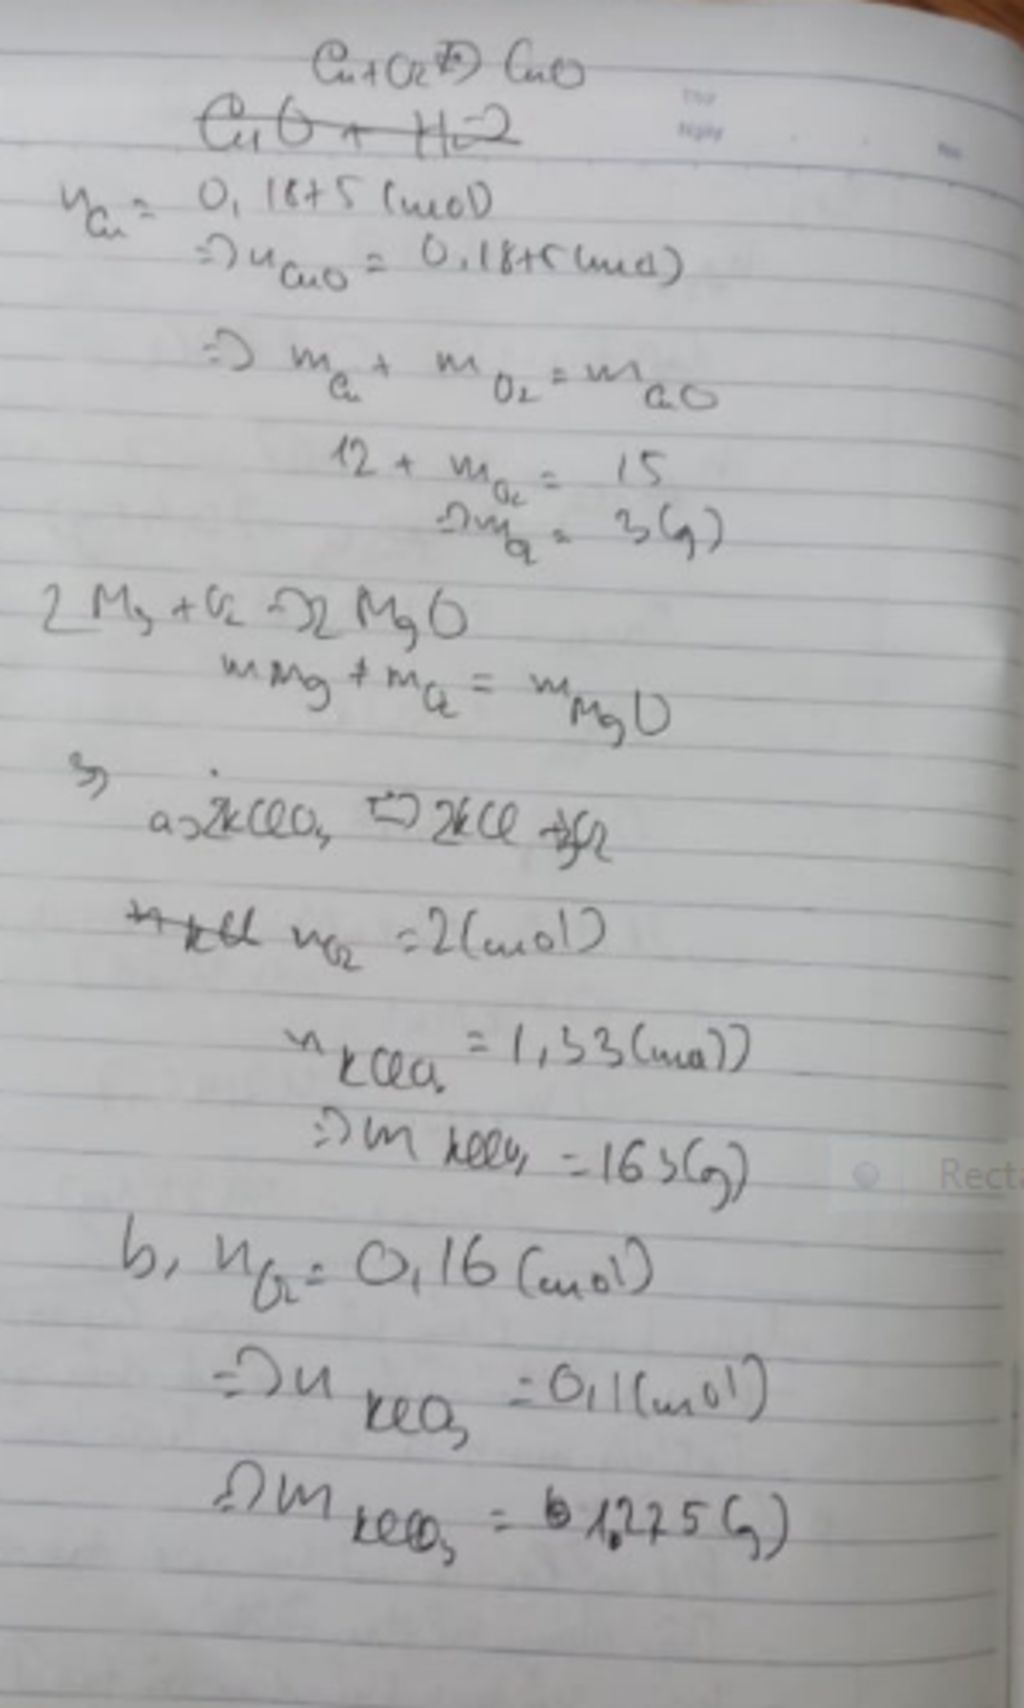 Cu + O2 => CuO
CuO + H2
nCu = 0,1875 (mol)
=> nCuO = 0,1875 (mol)
=> mCu + mO2 = mCuO
12 + mO2 = 15
=> mO2 = 3(g)
2Mg + O2 => 2MgO
mMg + mO2 = mMgO
3,
a, 2KClO3 => 2KCl + 3O2
nKCl nO2 = 2(mol)
nKClO3 = 1,33(mol)
=> mKClO3 = 163(g)
b, nO2 = 0,16(mol)
=> nKClO3 = 0,1(mol)
=> mKClO3 = 1.275(g)
Recta